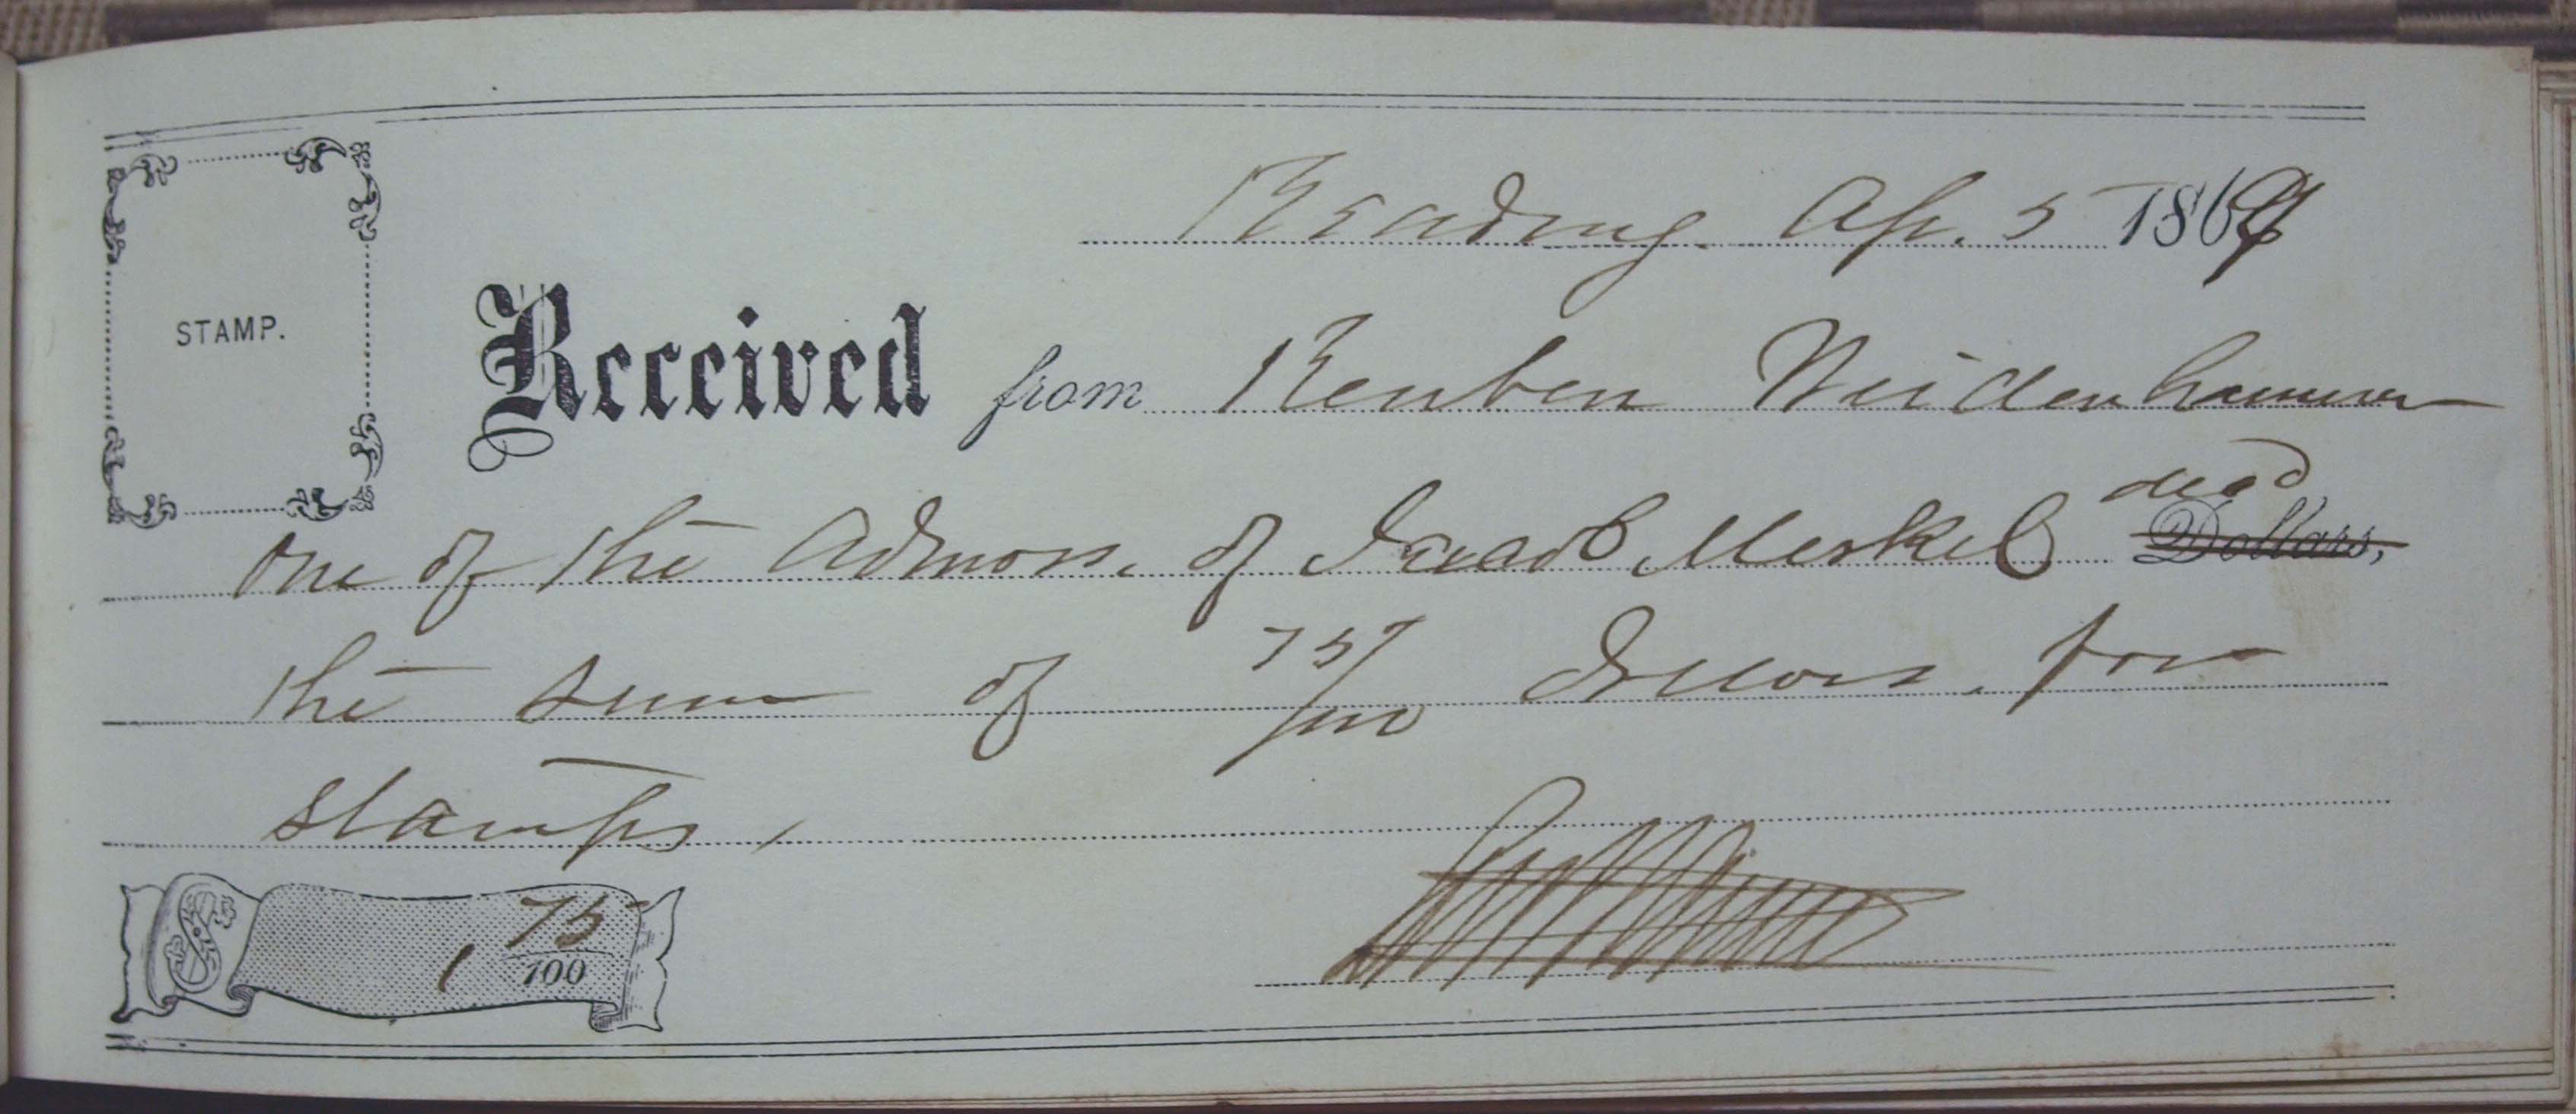 STAMP.
Reading. Ap. 5 1869
Received from Reuben Weidenhammer
decd
one of the Admors. of Jacob Merkel Dollars,
the sum of 75/100 Dollars, for
stamps,
1 75/100